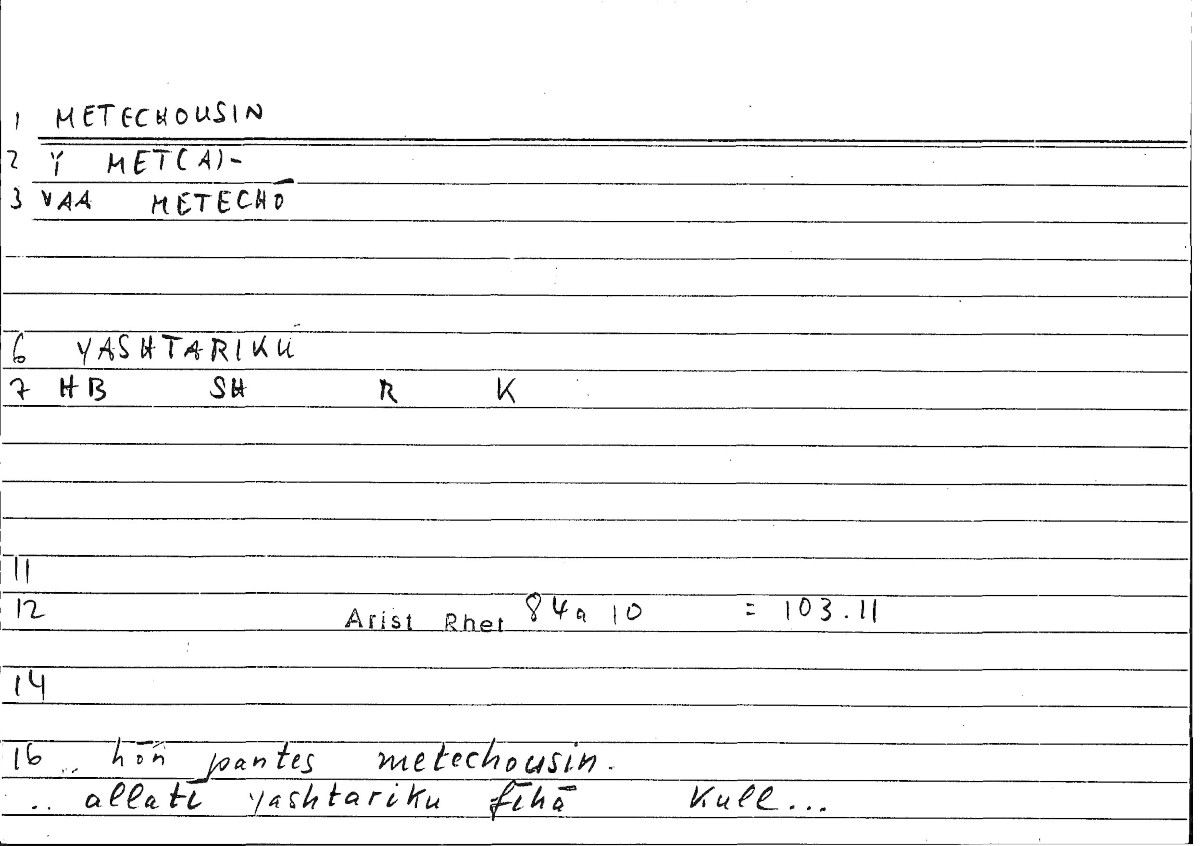 1 METECHOUSIN
2 Y MET(A)-
3 VAA METECHŌ
6 YASHTARIKU
7 HB SH R K
11
12 Arist Rhet 84a 10 = 103.11
14
16 .. hōn pantes metechousin.
.. allatī yashtariku fīhā Kull...